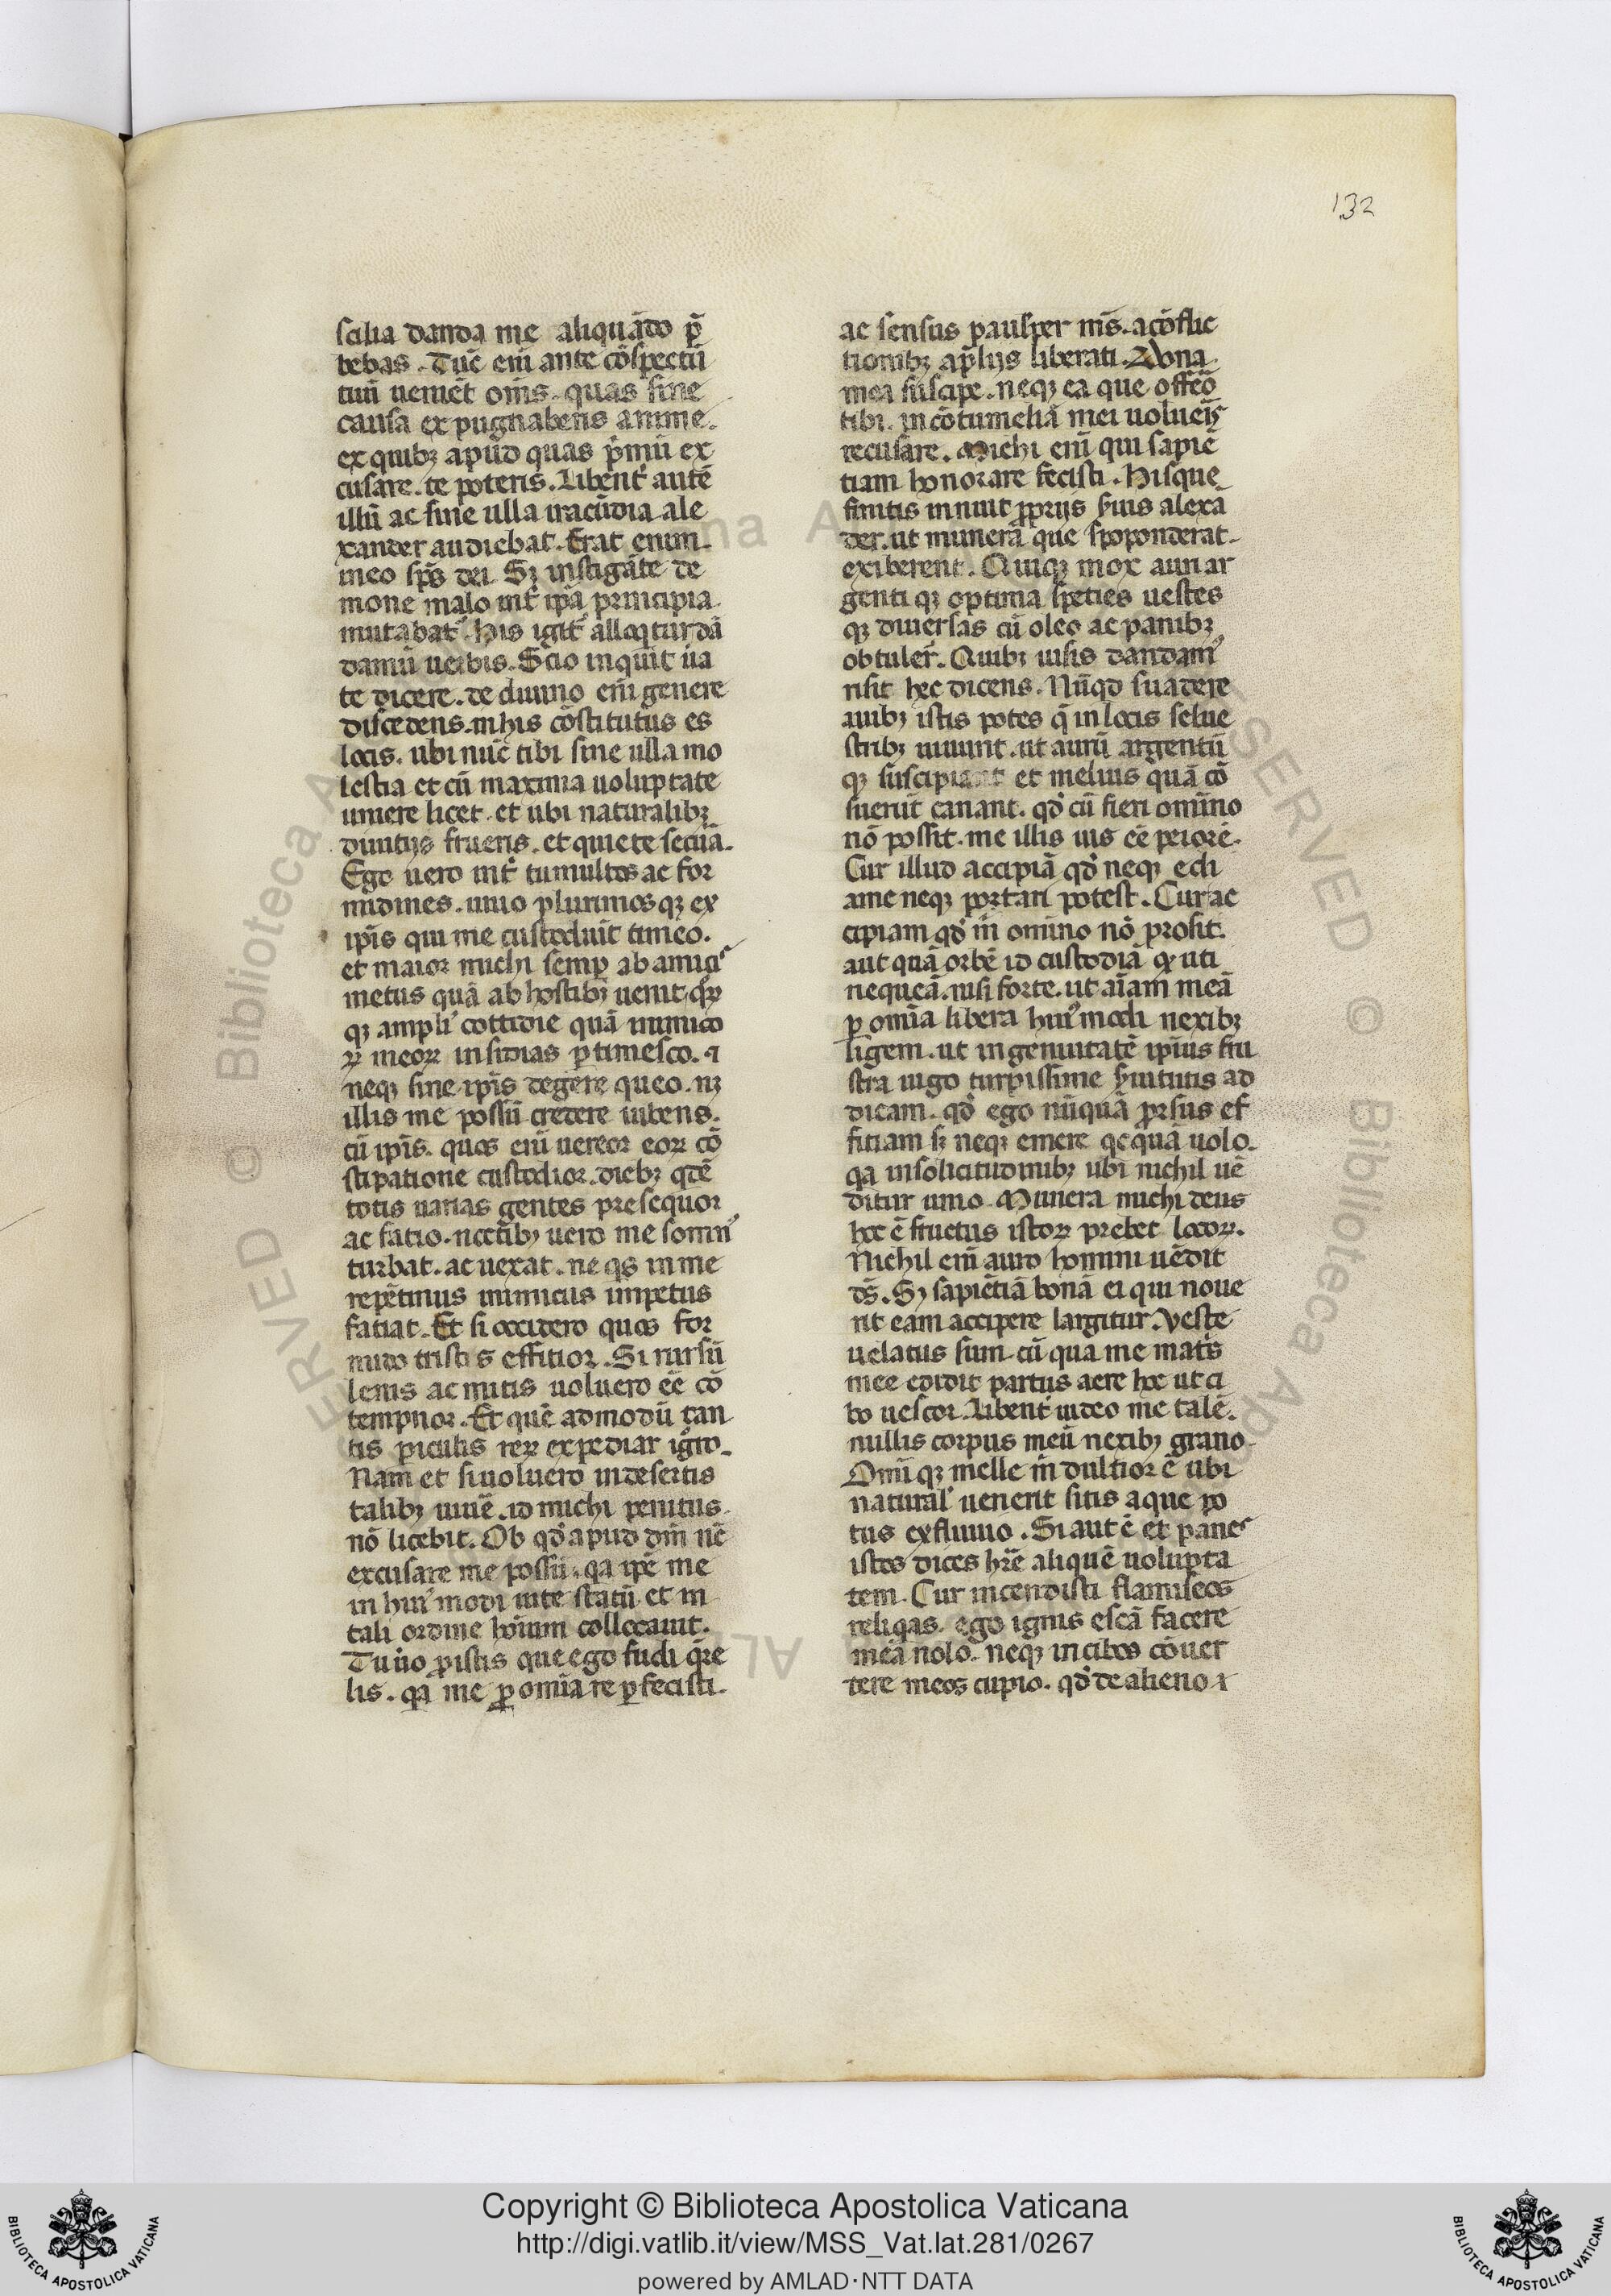 132
scilia danda me aliquādo p̄
bebas. Tūc eni᷒ ante cōspectū
tuū ueniēt om̄s. quas sine
causa expugnaberis anime.
ex quibꝫ apud quas p̄mū ex
cusare. te poteris. Libent᷒ autē
illū ac sine ulla iracūdia ale
xander audiebat. Erat enim
meo sp̄s dei. Sꝫ instigāte de
mone malo int᷒ ip̄a principia
mutabat᷒. His igit᷒ alloqtur dā
damū uerbis. Scio inquit ua
te dicere. de diuino enī genere
discedens. in his cōstitutus es
locis. ubi nūc tibi sine ulla mo
lestia et cū maxima uoluptate
uiuere licet. et ubi naturalibꝫ
diuitijs frueris. et quiete secūa.
Ego uero int᷒ tumultos ac for
midines. uiuo plurimosqꝫ ex
ip̄is qui me custodiūt timeo.
et maior michi semp ab amicis
metus quā ab hostibꝫ uenit
qꝫ ampli᷒ cottidie quā inimico
ꝝ meoꝝ insidias ptimesco. ⁊
neqꝫ sine ip̄is degere queo. nꝫ
illis me possū credere iubens.
cū ip̄is. quos enī uereor eoꝝ cō
stipatione custodior. diebꝫ qdē
totis uarias gentes presequor
ac fatio. noctibꝫ uero me somn᷒
turbat. ac uexat. ne qs in me
repētinus inimicus impetus
fatiat. Et si occidero quos for
mido tristis effitior. Si rursū
lenis ac mitis uoluero eē cō
tempnor. Et quē admodū tan
tis piculis reꝝ expediar igrō.
Nam et si uoluero in desertis
talibꝫ uiuē. id michi penitus
nō licebit. Ob qd᷒ apud dn̄m nē
excusare me possū. qa ip̄e me
in hui᷒ modi uite statū et in
tali ordine hoīum collocauit.
Tu ūo ꝓ istis que ego fudi qre
lis. qa me ꝑ omīa re ꝑfecisti.
ac sensus pausper mīs. a cōflic
tionibꝫ ap̄lijs liberati. Dona
mea suscipe. neqꝫ ea que offēo
tibi. in cōtumeliā mei uolueīs
recusare. Michi enī qui sapiē
tiam honorare fecisti. Hisque
finitis innuit ꝓprijs s̄uis alexā
der. ut munera que spoponderat
exiberent. Quiqꝫ mox auri ar
gentiqꝫ optima speties uestes
qꝫ diuersas cū oleo ac panibꝫ
obtuler̄. Quibꝫ uisis dandam᷒
risit hec dicens. Nūqd suadere
auibꝫ istis potes q̄ in locis selue
stribꝫ uiuunt. ut aurū argentū
qꝫ suscipiant et melius quā cō
sueuīt canant. qd᷒ cū fieri omīno
nō possit. me illis uis eē peiorē.
Cur illud accipiā qd᷒ neqꝫ edi
a me neqꝫ portari potest. Cur ac
cipiam qd᷒ m̄ omīno nō prosit.
aut quā orbē id custodiā quo uti
nequeā. nisi forte. ut aīam meā
ꝑ omīa libera hui᷒modi nexibꝫ
ligem. ut ingenuitatē ip̄ius fru
stra iugo turpissime s̄uitutis ad
dicam. qd᷒ ego nūquā prorsus ef
fitiam sꝫ neqꝫ emere qcquā uolo.
qa in solicitudinibꝫ ubi nichil uē
ditur uiuo. Munera michi deus
hoc ē fructus istoꝝ prebet locoꝝ.
Nichil enī auro homini uēdit
ds̄. Sꝫ sapiētiā bonā ei qui noue
rit eam accipere largitur. Veste
uelatus sum. cū qua me mat᷒s
mee edidit partus aere hoc ut ci
bo uescor. Libent᷒ uideo me talē.
nullis corpus meū nexibꝫ grauo.
Omīqꝫ melle m̄ dultior ē ubi
natural᷒ uenerit sitis aque po
tus ex fluuio. Si aut ē et panes
istos dices hr̄e aliquē uolupta
tem. Cur incendisti flamīs eos
reliqas. ego ignis escā facere
meā nolo. neqꝫ in cibos cōuer
tere meos cupio. qd᷒ de alieno ⁊
Copyright © Biblioteca Apostolica Vaticana
http://digi.vatlib.it/view/MSS_Vat.lat.281/0267
powered by AMLAD·NTT DATA